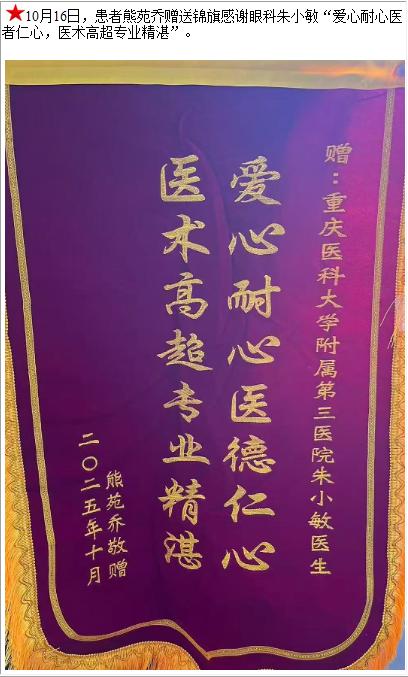 ★10月16日，患者熊苑乔赠送锦旗感谢眼科朱小敏“爱心耐心医
者仁心，医术高超专业精湛”。
赠：重庆医科大学附属第三医院朱小敏医生
爱心耐心医德仁心
医术高超专业精湛
熊苑乔敬赠
二〇二五年十月